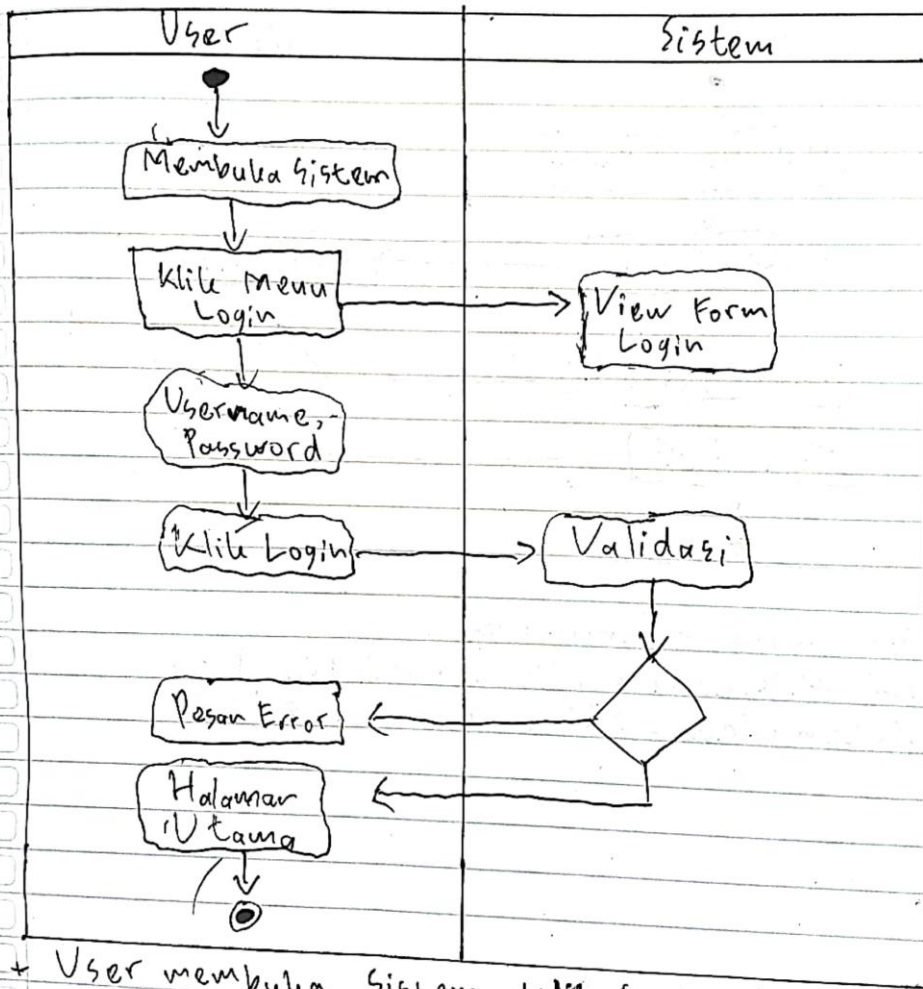 User
Sistem
Membuka Sistem
Klik Menu
Login
View Form
Login
Username,
Password
Klik Login
Validasi
Pesan Error
Halaman
Utama
+ User membuka Sistem